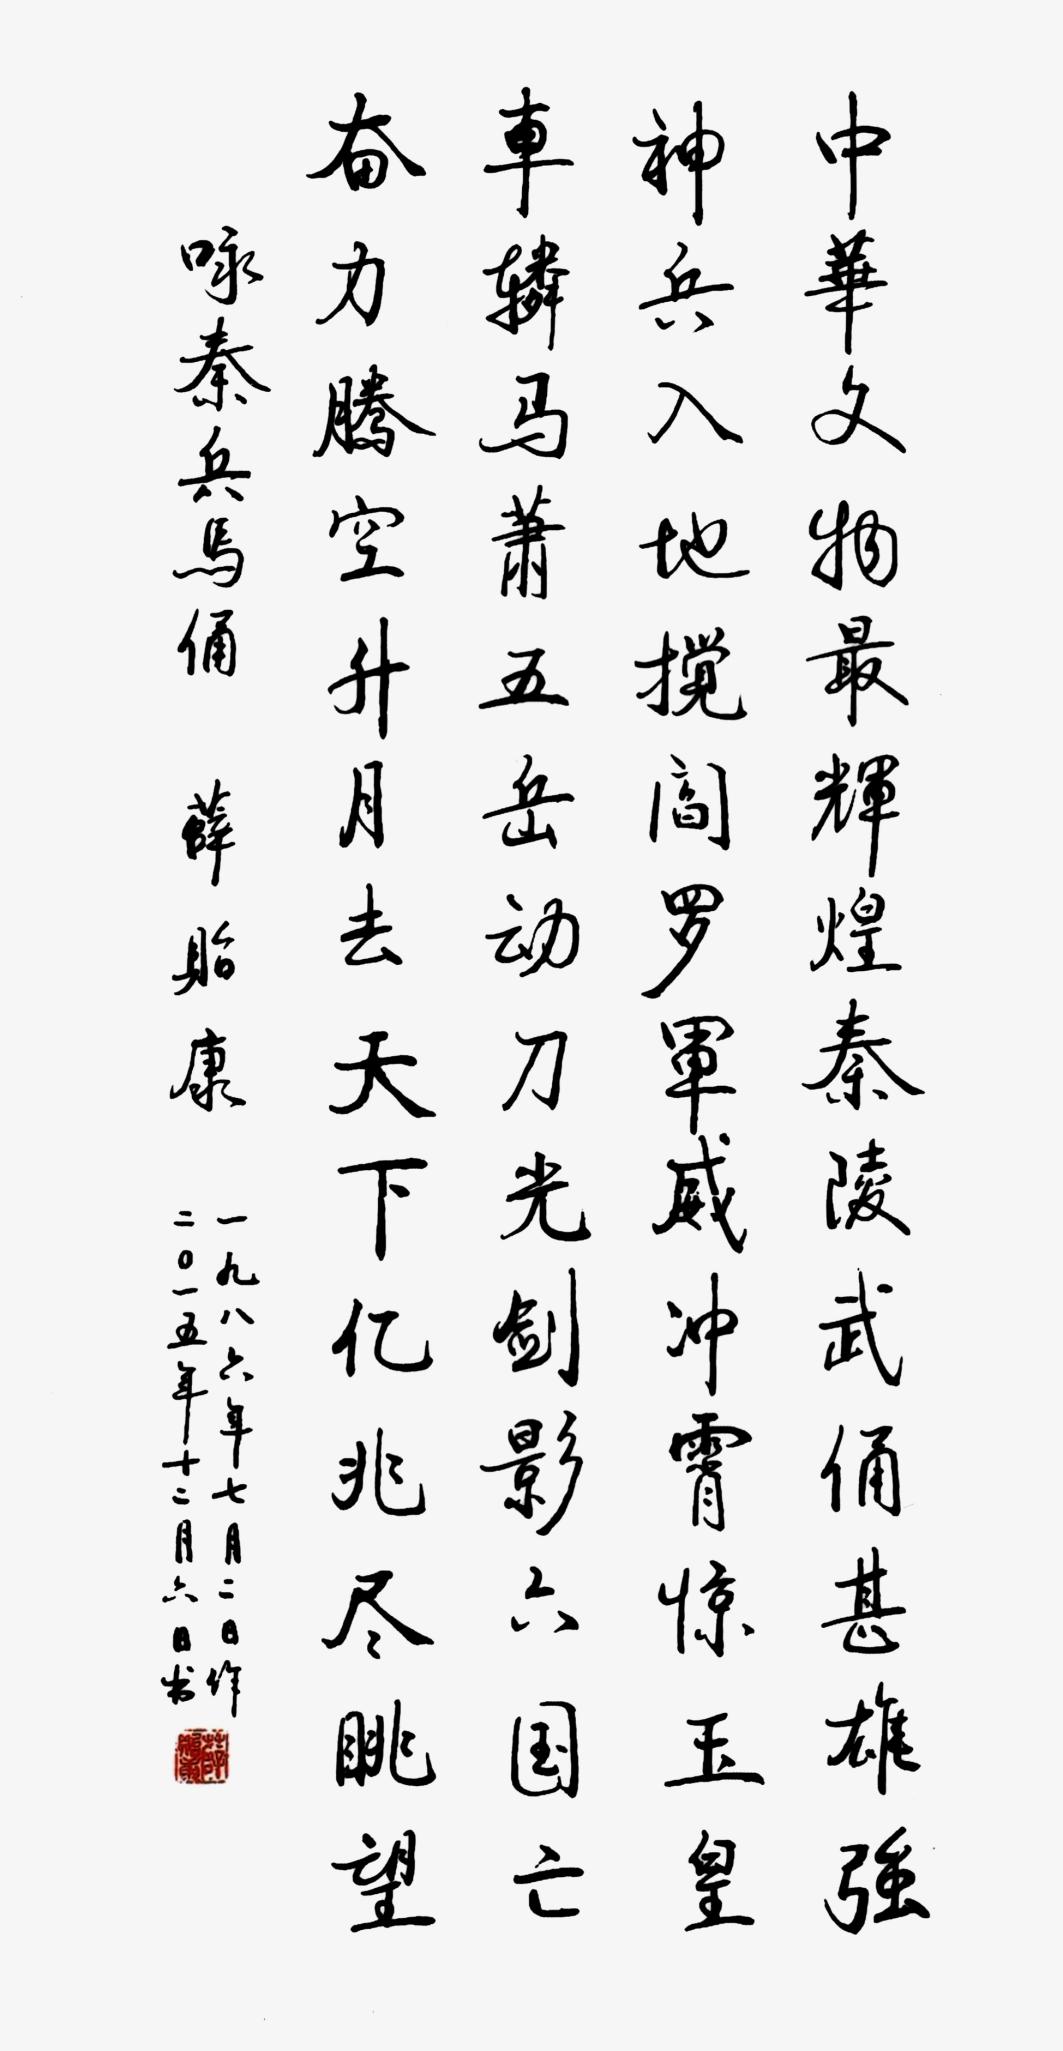 中華文物最輝煌秦陵武俑甚雄強
神兵入地撹閻罗軍威冲霄惊玉皇
車辚马萧五岳动刀光剑影六国亡
奋力腾空升月去天下亿兆尽眺望
咏秦兵馬俑 薛贻康
一九八六年七月二日作
二0一五年十二月六日书